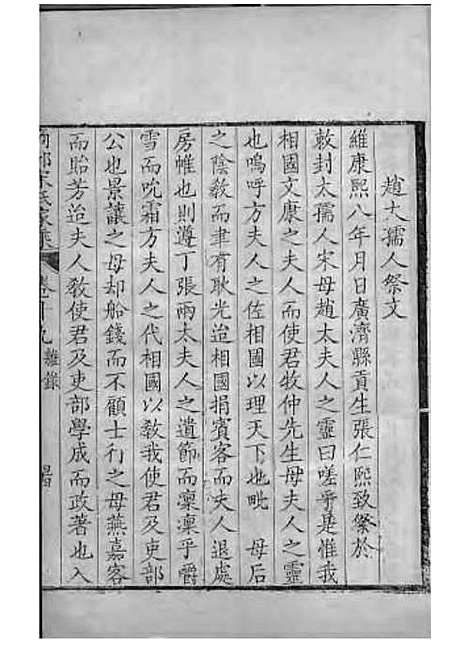 趙太孺人祭文
維康熙八年月日廣濟縣貢生張仁熙致祭於
敕封太孺人宋母趙太夫人之靈曰嗟乎是惟我
相國文康之夫人而使君牧仲先生母夫人之靈
也嗚呼方夫人之佐相國以理天下地也毗 母后
之陰教而聿有耿光迨相國捐賓客而夫人退處
房帷也則遵丁張兩太夫人之遺節而凜凜乎嚼
雪而吮霜方夫人之代相國以敎我使君及吏部
公也景讓之母却船錢而不顧士行之母燕嘉客
而貽芳迨夫人敎使君及吏部學成而政著也入
宋氏家乘 卷十九 雜錄